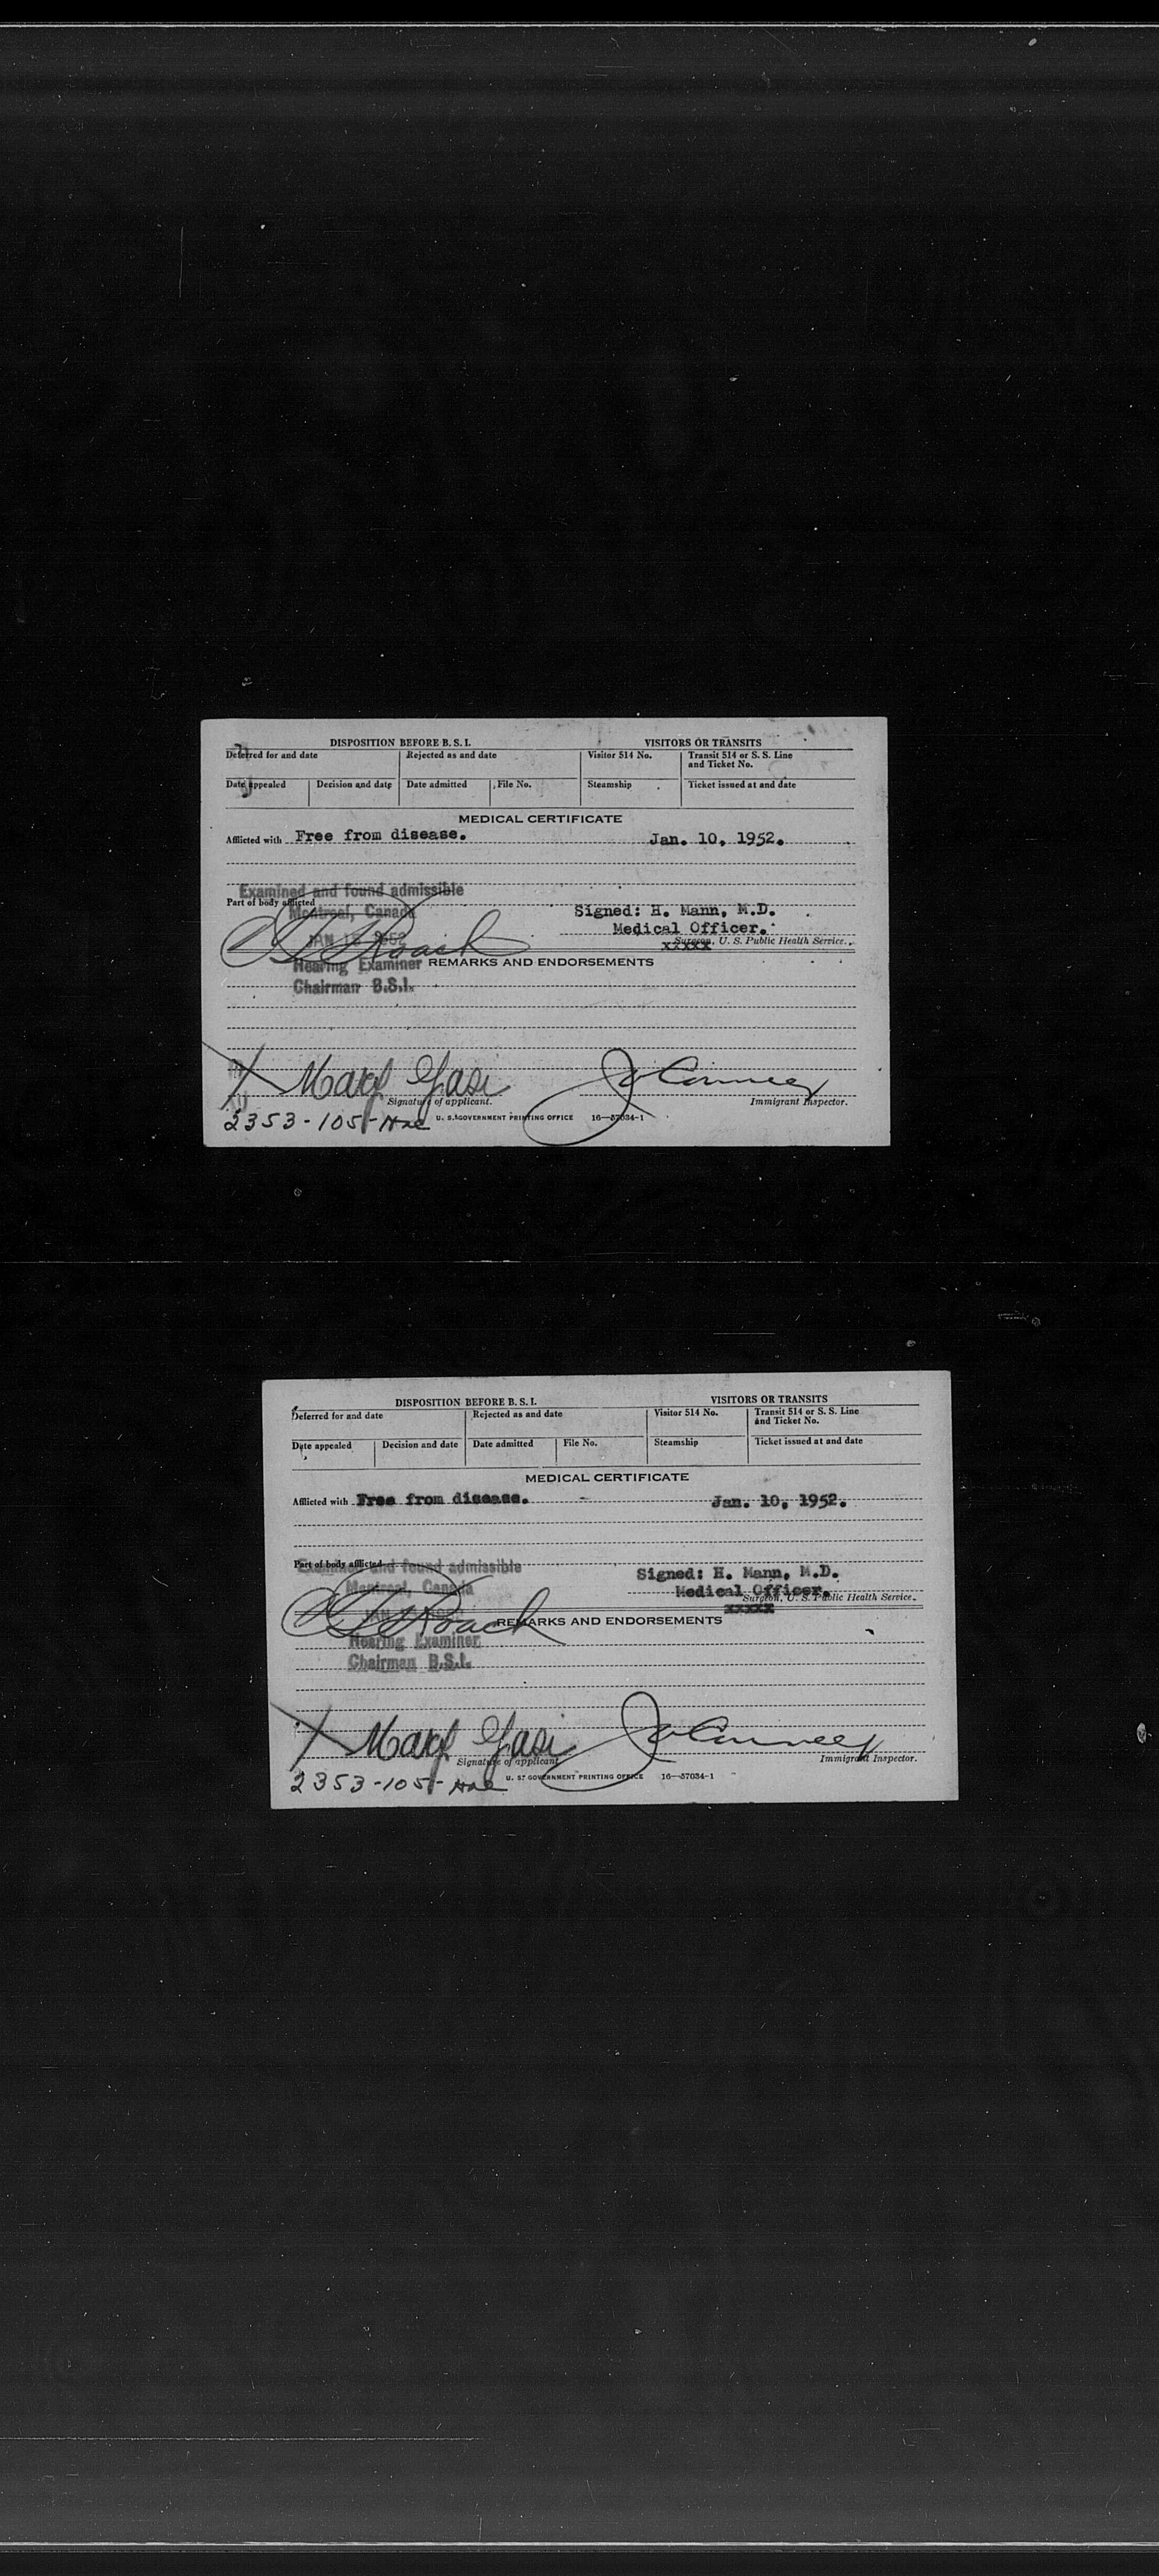 DISPOSITION BEFORE B. S. I. VISITORS OR TRANSITS
Deferred for and date Rejected as and date Visitor 514 No. Transit 514 or S. S. Line and Ticket No.
Date appealed Decision and date Date admitted File No. Steamship Ticket issued at and date
MEDICAL CERTIFICATE
Afflicted with Free from disease. Jan. 10, 1952.
Examined and found admissible
Part of body afflicted
Montreal, Canada
Signed: H. Mann, M.D.
Medical Officer.
JAN 1952 Roach
xxxxx Surgeon, U. S. Public Health Service.
Hearing Examiner REMARKS AND ENDORSEMENTS
Chairman B.S.I.
X
Signature of applicant. Immigrant Inspector.
2353-105- U. S. GOVERNMENT PRINTING OFFICE 16—57034-1
DISPOSITION BEFORE B. S. I. VISITORS OR TRANSITS
Deferred for and date Rejected as and date Visitor 514 No. Transit 514 or S. S. Line and Ticket No.
Date appealed Decision and date Date admitted File No. Steamship Ticket issued at and date
MEDICAL CERTIFICATE
Afflicted with Free from disease. Jan. 10, 1952.
Part of body afflicted
Examined and found admissible
Montreal, Canada
Signed: H. Mann, M.D.
Medical Officer.
Surgeon, U. S. Public Health Service.
xxxxx
JAN Roach REMARKS AND ENDORSEMENTS
Hearing Examiner
Chairman B.S.I.
X
Signature of applicant. Immigrant Inspector.
2353-105- U. S. GOVERNMENT PRINTING OFFICE 16—57034-1